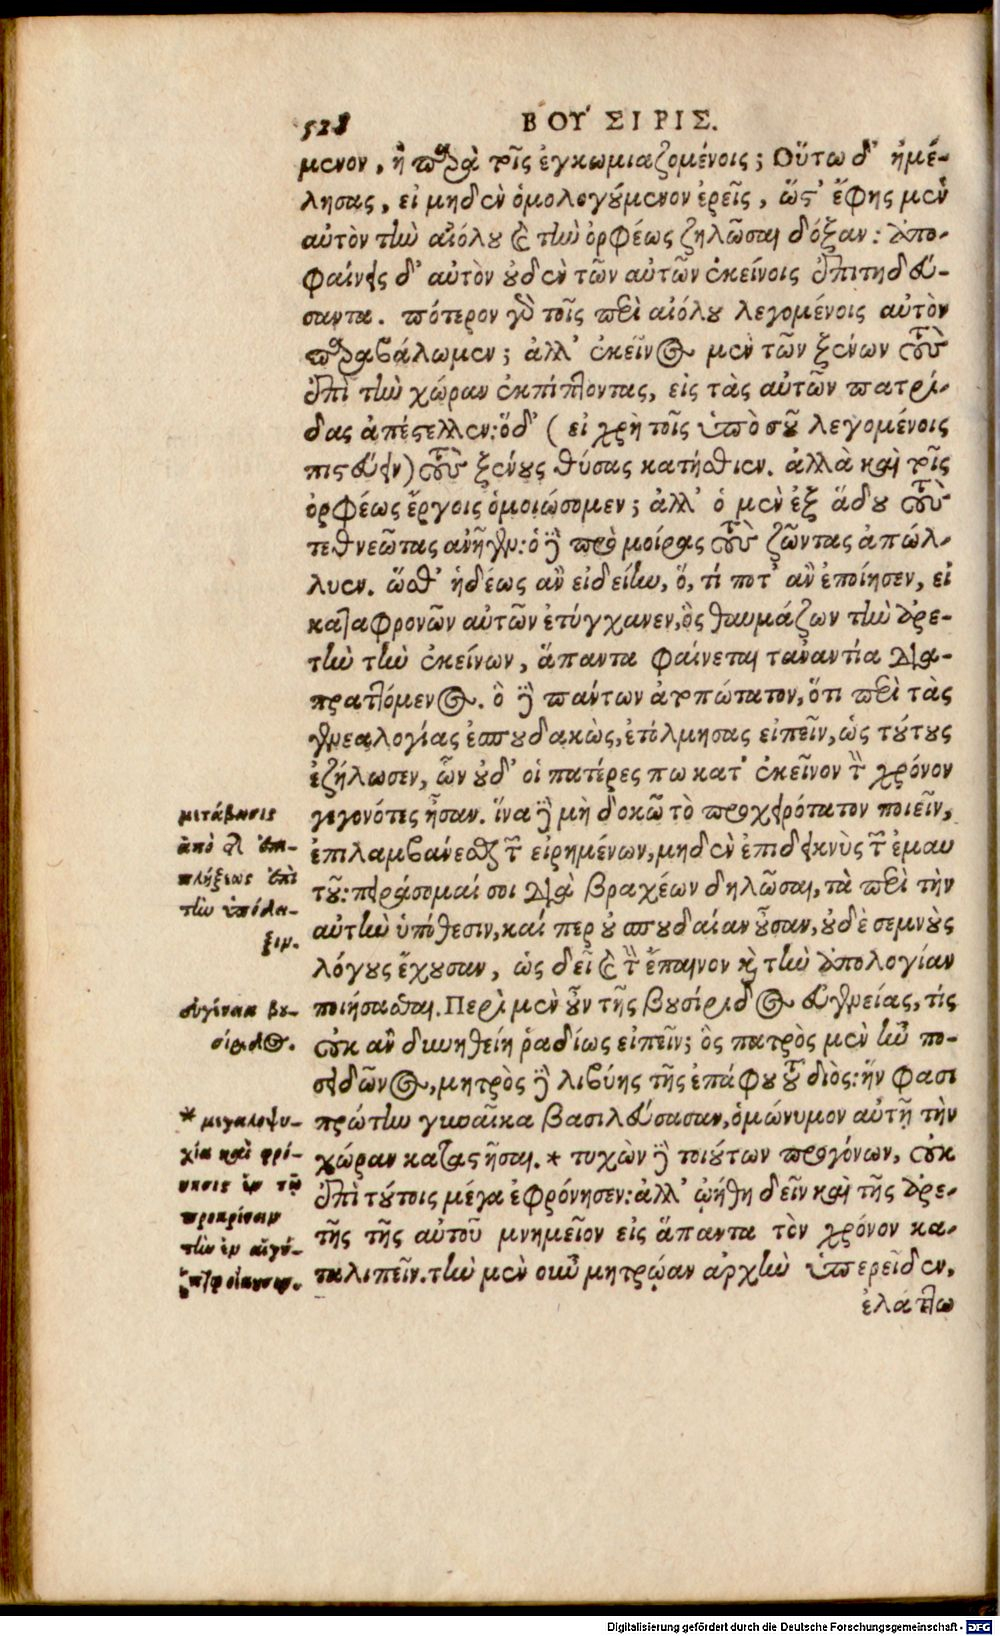 528 ΒΟΥ´ΣΙΡΙΣ.
μενον, ἢ παρὰ τοῖς ἐγκωμιαζομένοις; Οὕτω δ᾽ ἠμέ-
λησας, εἰ μηδὲν ὁμολογούμενον ἐρεῖς, ὥστ᾽ ἔφης μὲν
αὐτὸν τὴν αἰόλου καὶ τὴν ὀρφέως ζηλῶσαι δόξαν: ἀπο-
φαίνεις δ᾽ αὐτὸν οὐδὲν τῶν αὐτῶν ἐκείνοις ἐπιτηδεύ-
σαντα. πότερον γὰρ τοῖς περὶ αἰόλου λεγομένοις αὐτὸν
παραβάλωμεν; ἀλλ᾽ ἐκεῖνος μὲν τῶν ξένων τοὺς
ἐπὶ τὴν χώραν ἐκπίπτοντας, εἰς τὰς αὐτῶν πατρί-
δας ἀπέστελλεν: ὁδ᾽ (εἰ χρὴ τοῖς ὑπὸ σοῦ λεγομένοις
πιστεύειν) τοὺς ξένους θύσας κατήσθιεν. ἀλλὰ καὶ τοῖς
ὀρφέως ἔργοις ὁμοιώσομεν; ἀλλ᾽ ὁ μὲν ἐξ ἅδου τοὺς
τεθνεῶτας ἀνῆγεν: ὁ δὲ πρὸ μοίρας τοὺς ζῶντας ἀπώλ-
λυεν. ὥσθ᾽ ἡδέως ἂν εἰδείην, ὅ, τί ποτ᾽ ἂν ἐποίησεν, εἰ
καταφρονῶν αὐτῶν ἐτύγχανεν, ὃς θαυμάζων τὴν ἀρε-
τὴν τὴν ἐκείνων, ἅπαντα φαίνεται τἀναντία δια-
πραττόμενος. ὃ δὲ πάντων ἀτοπώτατον, ὅτι περὶ τὰς
γενεαλογίας ἐσπουδακὼς, ἐτόλμησας εἰπεῖν, ὡς τούτους
ἐζήλωσεν, ὧν οὐδ᾽ οἱ πατέρες πω κατ᾽ ἐκεῖνον τὸν χρόνον
γεγονότες ἦσαν. ἵνα δὲ μὴ δοκῶ τὸ προχειρότατον ποιεῖν,
ἐπιλαμβάνεσθαι τῶν εἰρημένων, μηδὲν ἐπιδεικνὺς τῶν ἐμαυ
τοῦ: πειράσομαί σοι διὰ βραχέων δηλῶσαι, τὰ περὶ τὴν
αὐτὴν ὑπόθεσιν, καί περ οὐ σπουδαίαν οὖσαν, οὐδὲ σεμνοὺς
λόγους ἔχουσαν, ὡς δεῖ καὶ τὸν ἔπαινον καὶ τὴν ἀπολογίαν
ποιήσασθαι. Περὶ μὲν οὖν τῆς βουσίριδος εὐγενείας, τίς
οὐκ ἂν δυνηθείη ῥαδίως εἰπεῖν; ὃς πατρὸς μὲν ἦν πο-
σειδῶνος, μητρὸς δὲ λιβύης τῆς ἐπάφου τοῦ διὸς: ἥν φασι
πρώτην γυναῖκα βασιλεύσασαν, ὁμώνυμον αὐτῇ τὴν
χώραν καταστῆσαι. * τυχὼν δὲ τοιούτων προγόνων, οὐκ
ἐπὶ τούτοις μέγα ἐφρόνησεν: ἀλλ᾽ ᾠήθη δεῖν καὶ τῆς ἀρε-
τῆς τῆς αὐτοῦ μνημεῖον εἰς ἅπαντα τὸν χρόνον κα-
ταλιπεῖν. τὴν μὲν οὖν μητρῴαν ἀρχὴν ὑπερεῖδεν,
ἐλάττω
μετάβασις
ἀπὸ τῆς ἐπι-
πλήξεως ἐπὶ
τὴν ὑπόδει-
ξιν.
εὐγένεια βου-
σίριδος.
* μεγαλοψυ-
χία καὶ φρό-
νησις ἐν τῷ
προκρίνειν
τὴν ἐν αἰγύ-
πτῳ οἴκησιν.